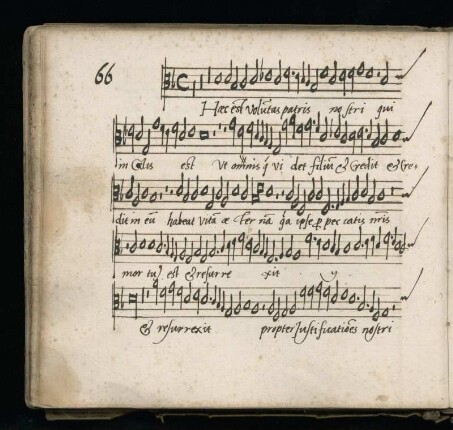 66
Hæc est voluntas patris nostri qui
in Cœlis est Ut omnis q̄ vi det filiū & Credit & Cre-
dit in eū habeat vitā æ ter nā q̄a ipse p̱ pec catis nr̄is
mor tuꝰ est & resurre xit ij
& resurrexit propter Justificatiōes nostri